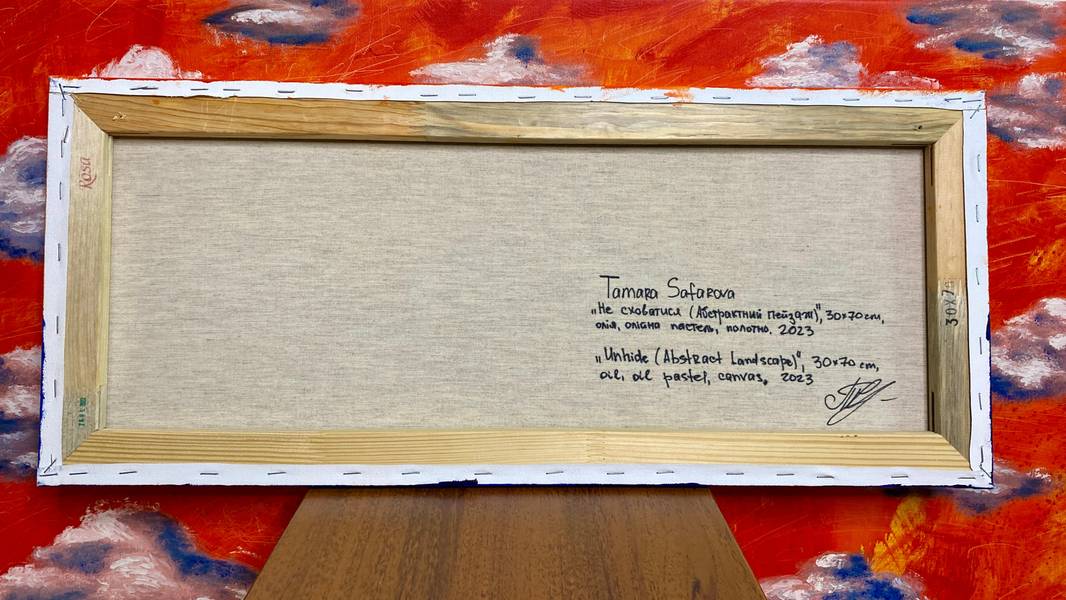 Rosa
Tamara Safarova
„Не сховатися (Абстрактний пейзаж)", 30×70 cm,
олія, олійна пастель, полотно. 2023
„Unhide (Abstract Landscape)", 30×70 cm,
oil, oil pastel, canvas, 2023